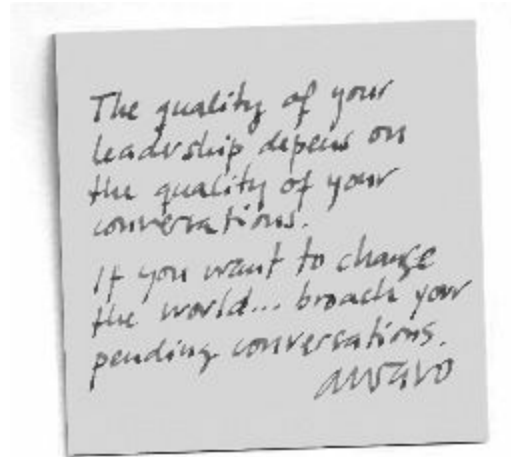 The quality of your
leadership depens on
the quality of your
conversations.
If you want to change
the world... broach your
pending conversations.
alvaro